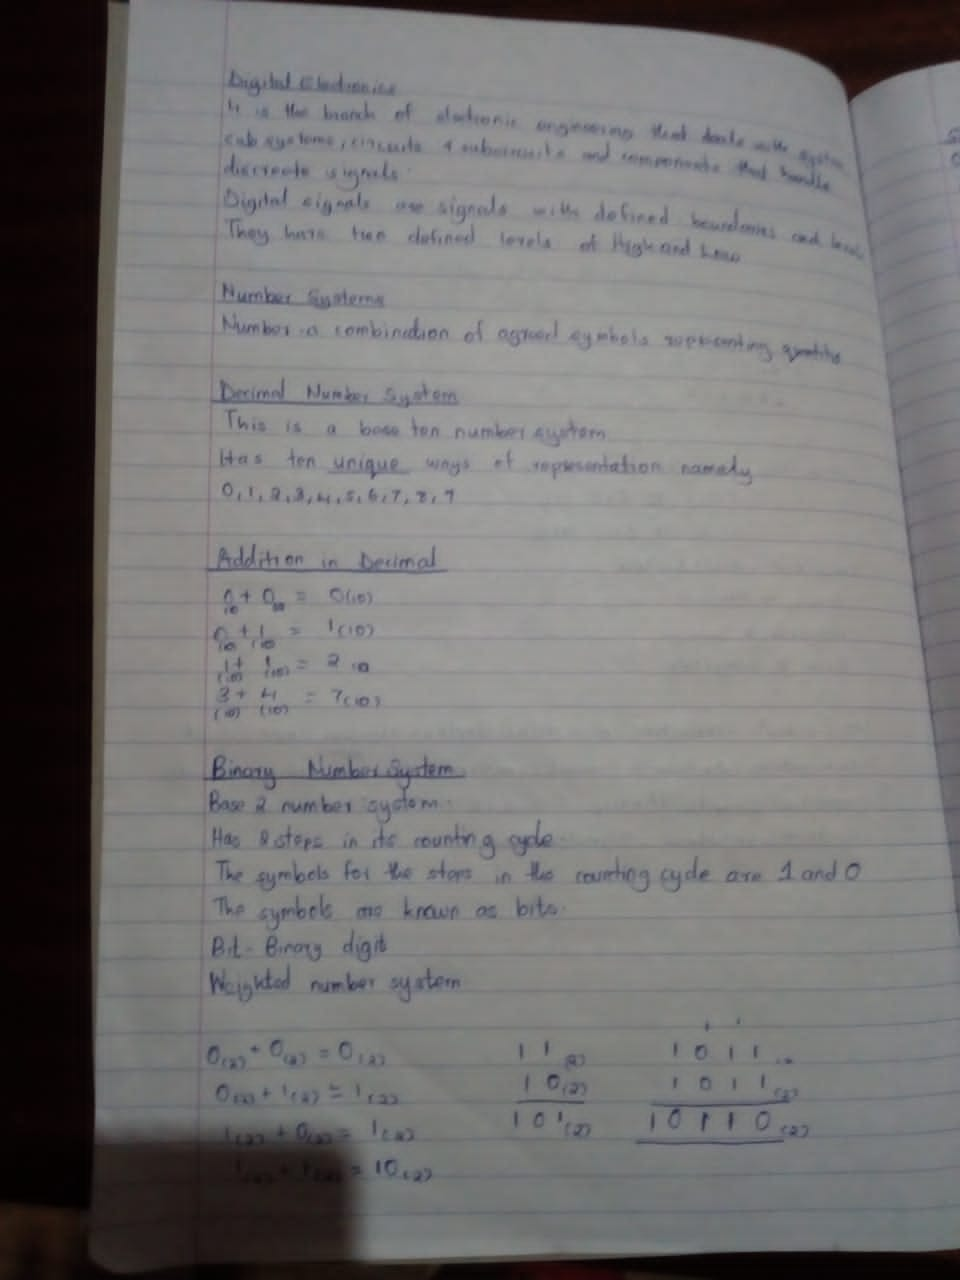 Digital Electronics
It is the branch of electronic engineering that deals with system
sub systems, circuits & subcircuits and components that handle
discrete signals.
Digital signals are signals with defined boundaries and levels
They have two defined levels of High and Low
Number Systems
Number - a combination of agreed symbols representing quantity
Decimal Number System
This is a base ten number system
Has ten unique ways of representation namely
0, 1, 2, 3, 4, 5, 6, 7, 8, 9
Addition in Decimal
0₁₀ + 0₁₀ = 0(10)
0₁₀ + 1₁₀ = 1(10)
1(10) + 1(10) = 2 10
3(10) + 4(10) = 7(10)
Binary Number System
Base 2 number system.
Has 2 steps in its counting cycle
The symbols for the steps in the counting cycle are 1 and 0
The symbols are known as bits.
Bit - Binary digit
Weighted number system
0(2) + 0(2) = 0(2)
0(2) + 1(2) = 1(2)
1(2) + 0(2) = 1(2)
1(2) + 1(2) = 10(2)
1 1 (2)
1 0(2)
1 0 1(2)
1 1
1 0 1 1
1 0 1 1 (2)
1 0 1 1 0 (2)